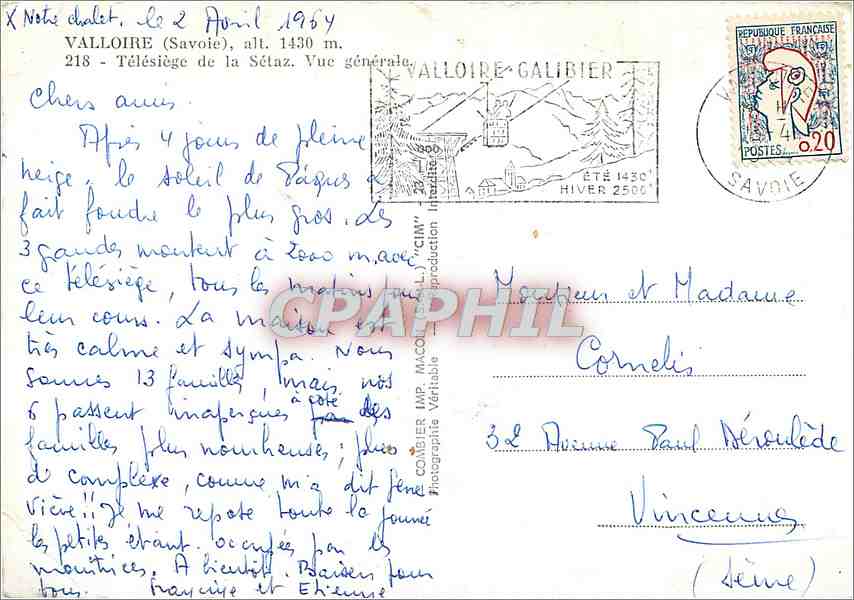 X Notre chalet. le 2 Avril 1964
VALLOIRE (Savoie), alt. 1430 m.
218 - Télésiège de la Sétaz. Vue générale.
Chers amis.
Après 4 jours de pleine
neige, le soleil de Pâques a
fait fondre le plus gros. Les
3 grandes montent à 2000 m. avec
ce télésiège, tous les matins pour
leur cours. La maison est
très calme et sympa. Nous
sommes 13 familles, mais nos
6 passent inaperçues à côté des
familles plus nombreuses ; plus
de complexe, comme m'a dit Gene
viève!! Je me repose toute la journée
les petites étant occupées par les
monitrices. A bientôt. Baisers pour
tous. Francine et Etienne
VALLOIRE-GALIBIER
ÉTÉ 1430
HIVER 2500
SAVOIE
REPUBLIQUE FRANÇAISE
POSTES
0,20
COMBIER IMP. MACON (S.-&-L.) "CIM"
Photographie Véritable - Reproduction Interdite
CPAPHIL
Monsieur et Madame
Cornelis
32 Avenue Paul Déroulède
Vincennes
(Seine)